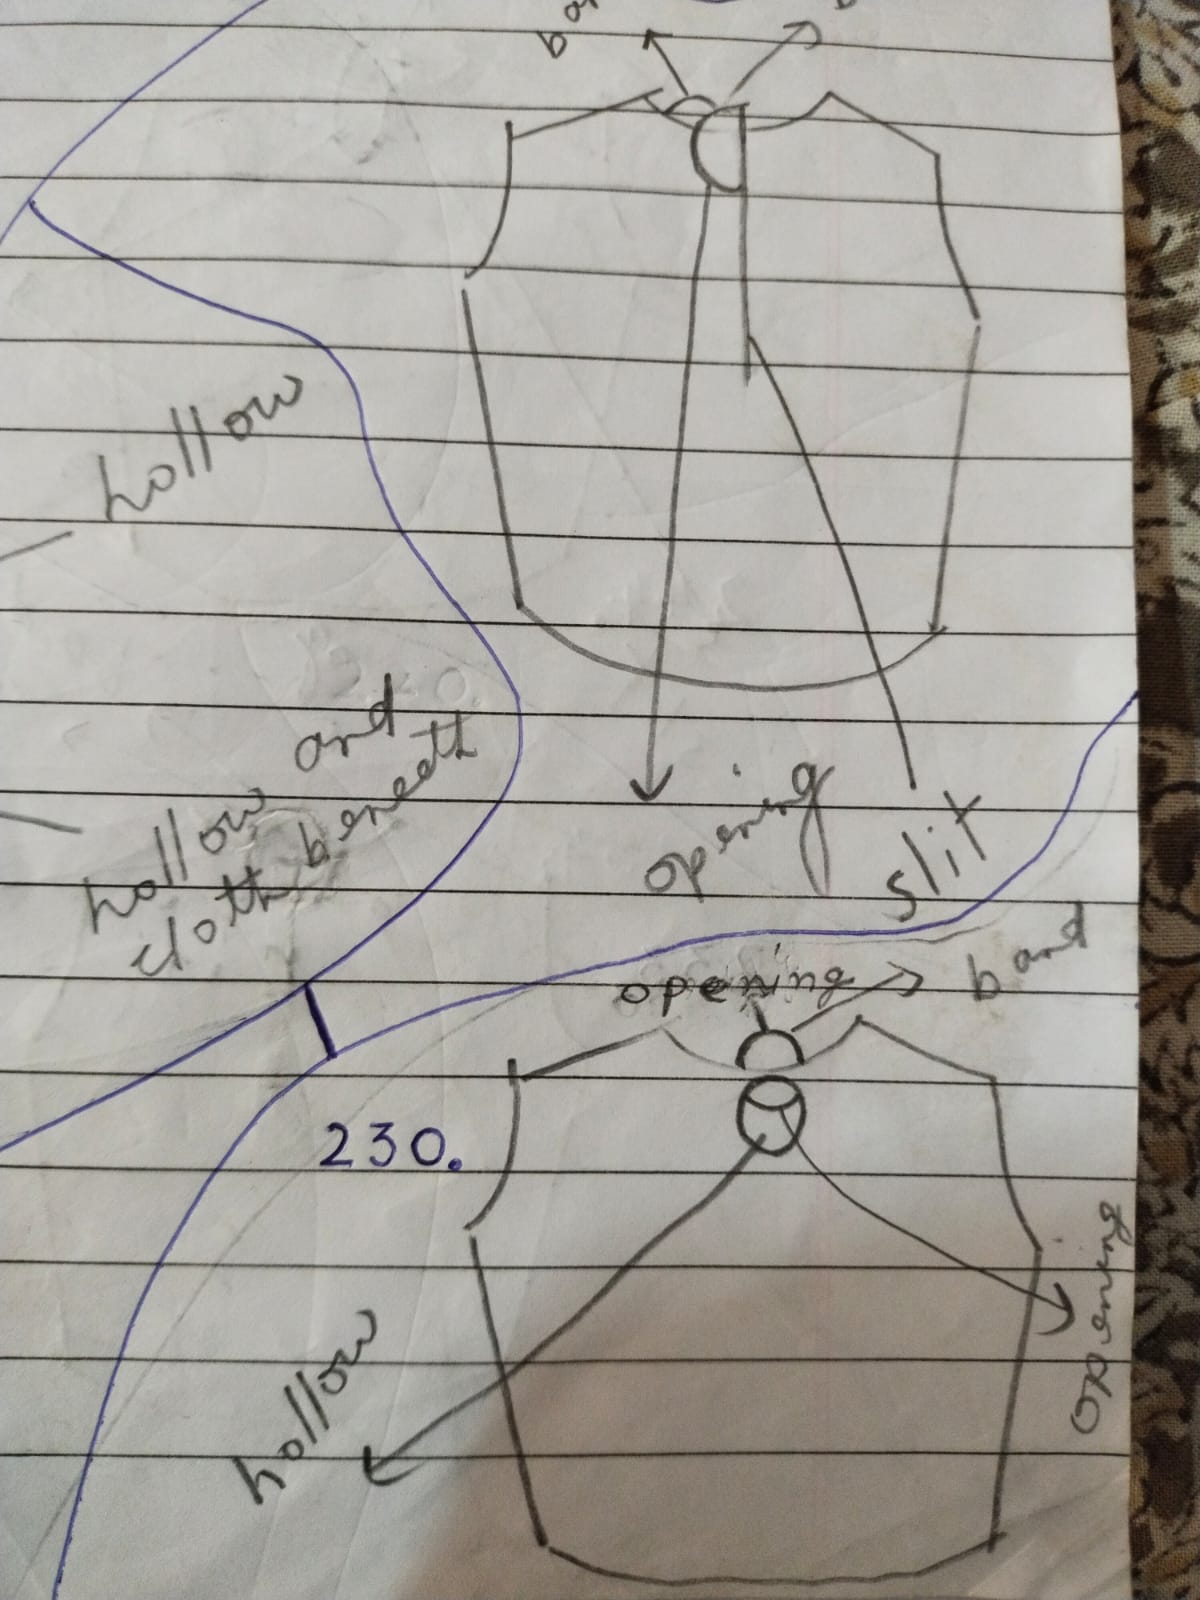 hollow
hollow and
cloth beneeth
opening
slit
opening
band
230.
opening
hollow